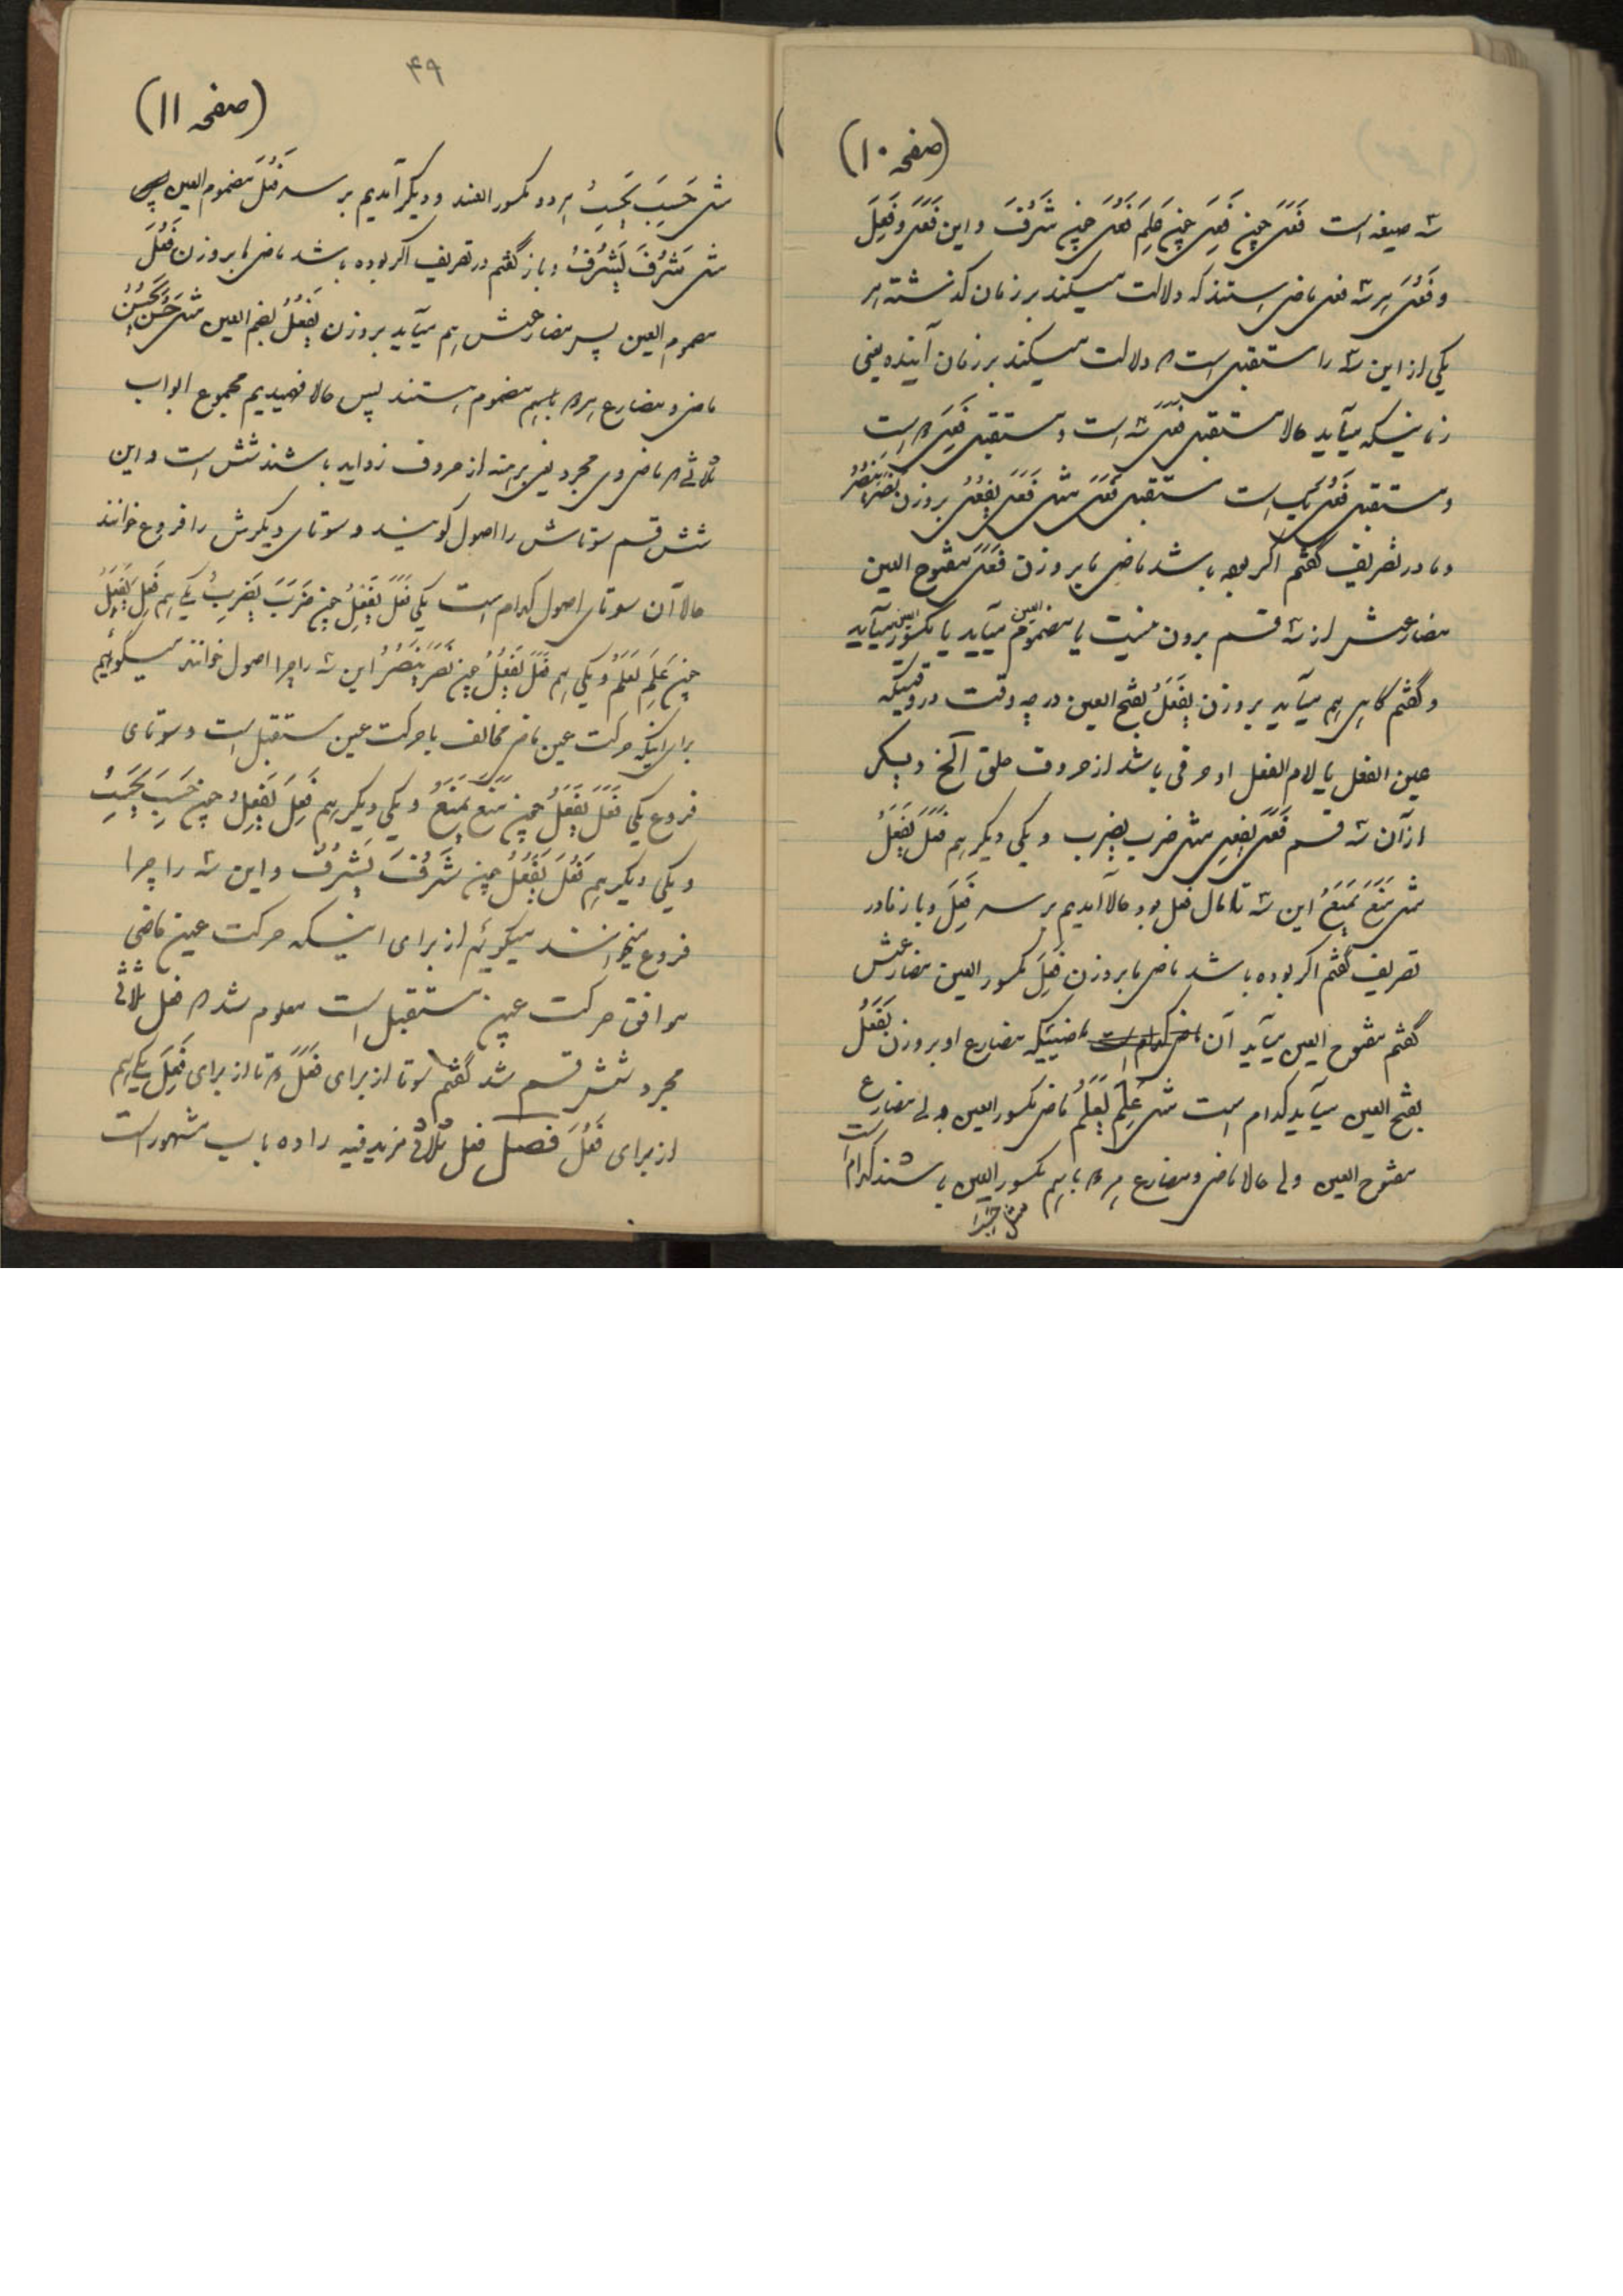 (صفحه ۱۰)
سه صیغه است فَعَلَ چون فَعِلَ چون عَلِمَ فَعُلَ چون شَرُفَ و این فَعَلَ و فَعِلَ
و فَعُلَ هر سه فعل ماضی هستند که دلالت میکند بر زمان گذشته هر
یکی از این سه را مستقبلی است که دلالت میکند بر زمان آینده یعنی
زمانیکه میآید حالا مستقبل فَعَلَ سه است و مستقبل فَعِلَ دو است
و مستقبل فَعُلَ یک است مستقبل فَعَلَ مثل فَعَلَ یَفْعُلُ بروزن نَصَرَ یَنْصُرُ
و ما در تصریف گفتم اگر بوده باشد ماضی ما بروزن فَعَلَ مفتوح العین
مضارعش از سه قسم برون نیست یا مضموم العین میآید یا مکسور العین میآید
و گفتم گاهی هم میآید بروزن یَفْعَلُ بفتح العین در چه وقت در وقتیکه
عین الفعل یا لام الفعل او حرفی باشد از حروف حلق الخ و یکی
از آن سه قسم فَعَلَ یَفْعِلُ مثل ضرب یضرب و یکی دیگر هم فَعَلَ یَفْعَلُ
مثل مَنَعَ یَمْنَعُ این سه تا مال فعل بود حالا آمدیم بر سر فَعِلَ و باز ما در
تصریف گفتم اگر بوده باشد ماضی ما بروزن فَعِلَ مکسور العین مضارعش
گفتم مفتوح العین میآید آن ماضی کدام است ماضییکه مضارع او بروزن یَفْعَلُ
بفتح العین میآید کدام است مثل عَلِمَ یَعْلَمُ ماضی مکسور العین ولی مضارع
مفتوح العین ولی حالا ماضی و مضارع هر دو با هم مکسور العین باشند کدام است
(صفحه ۱۱)
۴۹
مثل حَسِبَ یَحْسِبُ هر دو مکسور العند و دیگر آمدیم بر سر فَعُلَ مضموم العین
مثل شَرُفَ یَشْرُفُ و باز گفتم در تصریف اگر بوده باشد ماضی ما بروزن فَعُلَ
مضموم العین پس مضارعش هم میآید بروزن یَفْعُلُ بضم العین مثل حَسُنَ یَحْسُنُ
ماضی و مضارع هر دو باهم مضموم هستند پس حالا فهمیدیم مجموع ابواب
ثلاثی که ماضی وی مجرد یعنی برهنه از حروف زواید باشند شش است و این
شش قسم سوتاش را اصول گویند و سوتای دیگرش را فروع خوانند
حالا آن سوتای اصول کدام است یکی فَعَلَ یَفْعِلُ چون ضَرَبَ یَضْرِبُ یکی هم فَعِلَ یَفْعَلُ
چون عَلِمَ یَعْلَمُ و یکی هم فَعَلَ یَفْعُلُ چون نَصَرَ یَنْصُرُ این سه را چرا اصول خوانند میگوئیم
برای اینکه حرکت عین ماضی مخالف با حرکت عین مستقبل است و سوتای
فروع یکی فَعَلَ یَفْعَلُ چون مَنَعَ یَمْنَعُ و یکی دیگر هم فَعِلَ یَفْعِلُ چون حَسِبَ یَحْسِبُ
و یکی دیگر هم فَعُلَ یَفْعُلُ چون شَرُفَ یَشْرُفُ و این سه را چرا
فروع میخوانند میگوئیم از برای اینکه حرکت عین ماضی
موافق حرکت عین مستقبل است معلوم شد که فعل ثلاثی
مجرد شش قسم شد گفتم سوتا از برای فَعَلَ دو تا از برای فَعِلَ یکی هم
از برای فَعُلَ فصل فعل ثلاثی مزید فیه را ده باب مشهور است